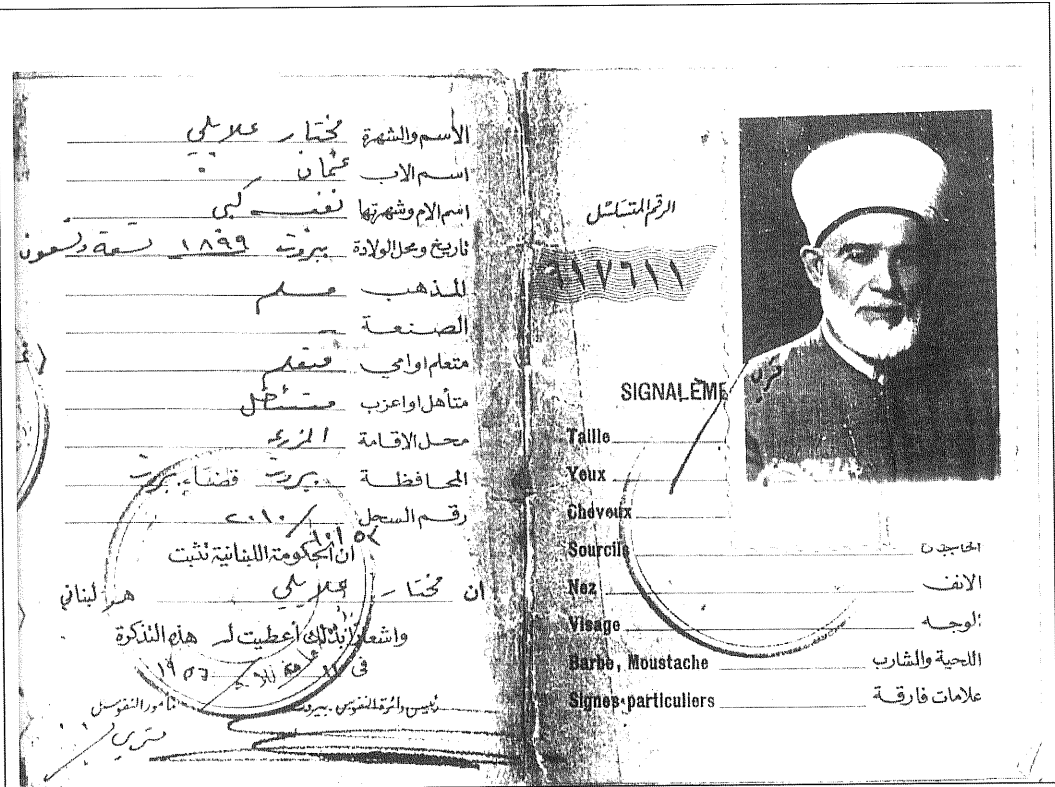 الأسم والشهرة مختار علايلي
اسم الاب عثمان
اسم الام وشهرتها كبي
تاريخ ومحل الولادة بيروت ١٨٩٩ تسعة وتسعون
المذهب مسلم
الصنعة -
متعلم اوامي متعلم
متأهل او اعزب متأهل
محل الاقامة المزرعة
المحافظة بيروت قضاء بيروت
رقم السجل ٢٠١٠/
ان الحكومة اللبنانية تثبت
ان مختار علايلي هو لبناني
واشعارا بذلك أعطيت له هذه التذكرة
في ١٩٥٦
رئيس دائرة النفوس بيروت مأمور النفوس
الرقم المتسلسل
٦١٧٦١١
SIGNALEME
Taille
Yeux
Cheveux
Sourcils الحاجبان
Nez الانف
Visage الوجه
Barbe, Moustache اللحية والشارب
Signes particuliers علامات فارقة